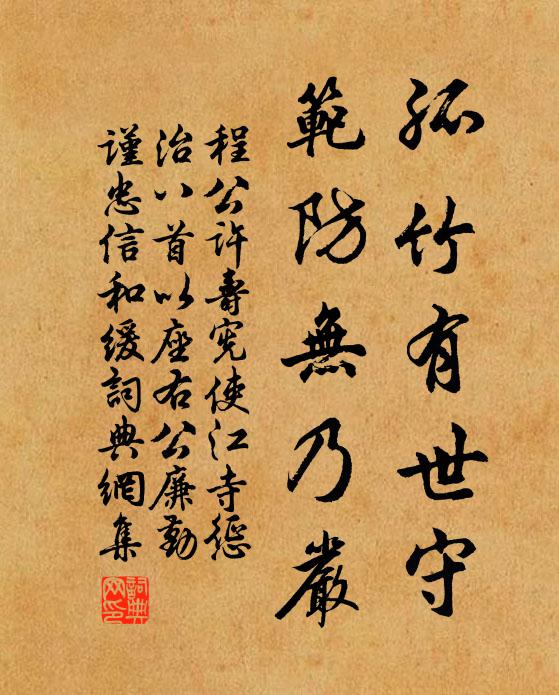 孤竹有世守
範防無乃嚴
程公許壽宪使江寺惩
治八首以座右公廉勤
謹忠信和緩詞典網集
詞典网印